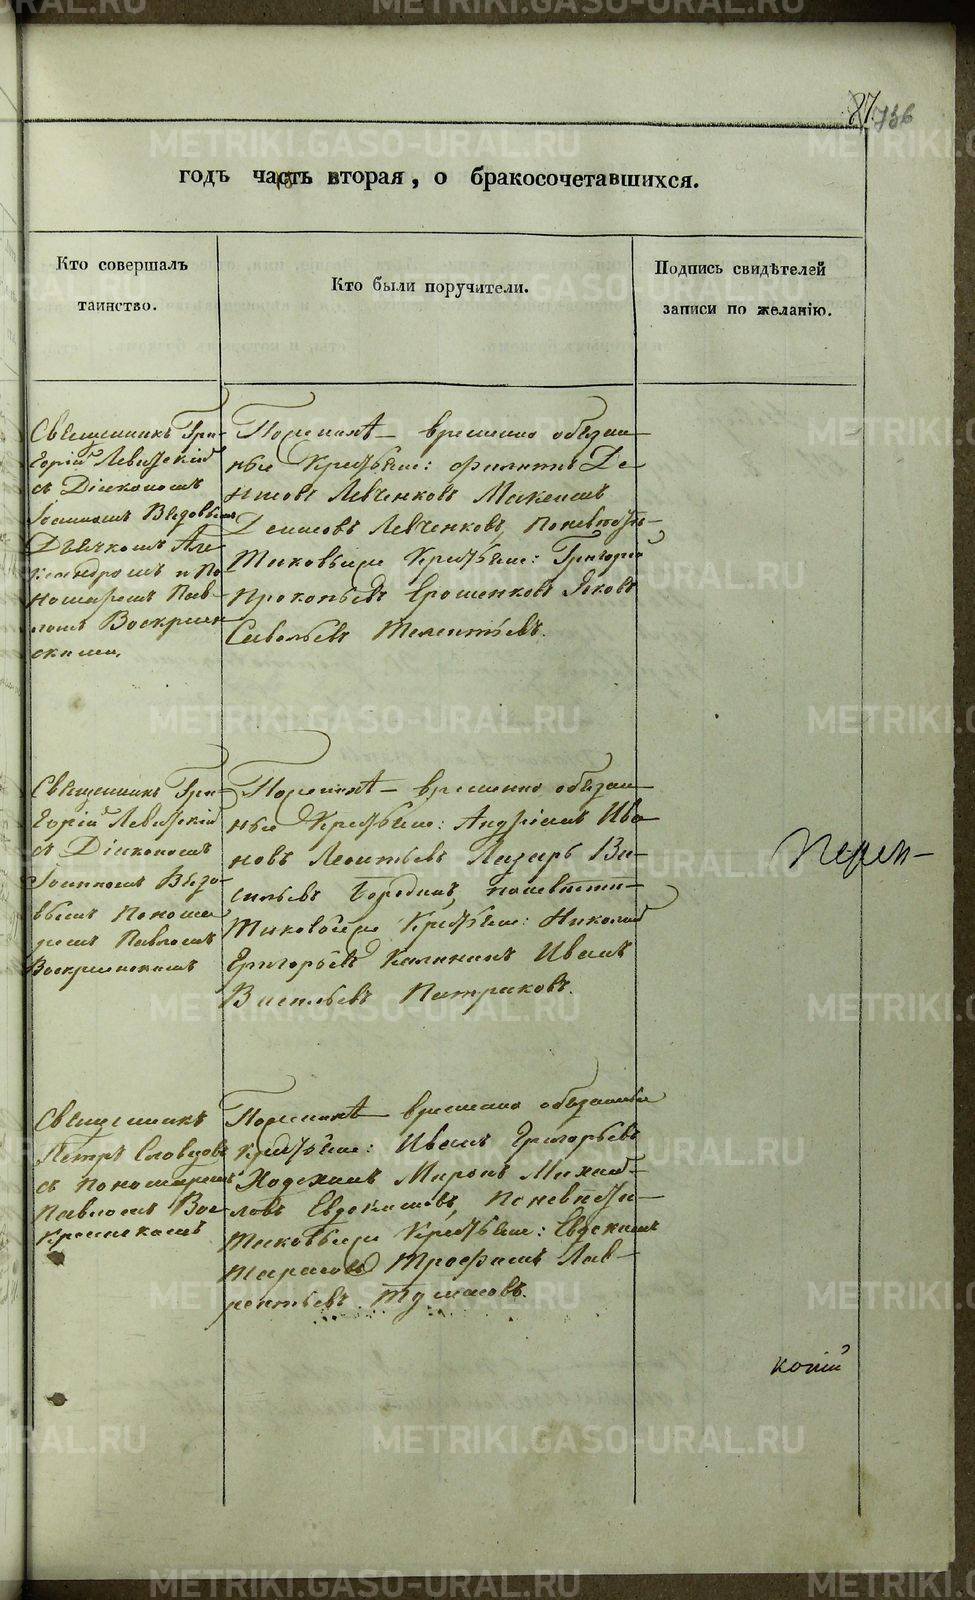 87.
736
годъ часть вторая, о бракосочетавшихся.
Кто совершалъ
таинство.
Кто были поручители.
Подпись свидѣтелей
записи по желанію.
Священникъ Гри-
горій Левитскій
съ Діакономъ
Іоанномъ Вздо
Дьячкомъ Але
ксандромъ и По
номаремъ Пав-
ломъ Воскресен
скими.
По женихѣ временно обязан-
ные Крестьяне: Филиппъ Де-
нисовъ Левченковъ Максимъ
Денисовъ Левченковъ, По невѣстѣ
Крестьяне: Григорій
Прокопьевъ Ерошенковъ Яковъ
Савельевъ Мелентьевъ.
Священникъ Гри-
горій Левитскій
съ Діакономъ
Іоанномъ Вздо-
вымъ Понома
ремъ Павломъ
Воскресенскимъ
По женихѣ временно обязан-
ные Крестьяне: Андріанъ Ива
новъ Леонтьевъ Лазарь Ва-
сильевъ Бородинъ, по невѣстѣ
Крестьяне: Николай
Григорьевъ Калининъ Иванъ
Васильевъ Патраковъ.
Священникъ
Петръ Словцовъ
съ пономаремъ
Павломъ Вос-
кресенскимъ
По женихѣ временно обязанные
Крестьяне: Иванъ Григорьевъ
Миронъ Михай-
ловъ Евдокимовъ, По невѣстѣ
Крестьяне: Евдокимъ
Тарасовъ Трофимъ Лав-
рентьевъ Тумасовъ.
копій
METRIKI.GASO-URAL.RU